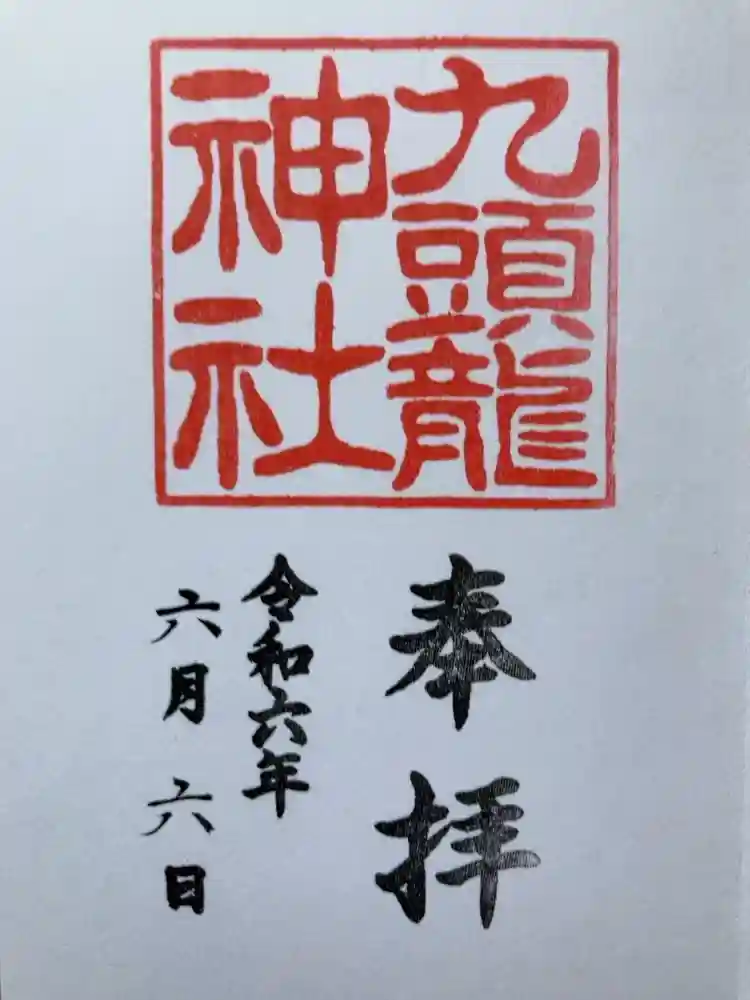 九頭龍
神社
奉拝
令和六年
六月六日